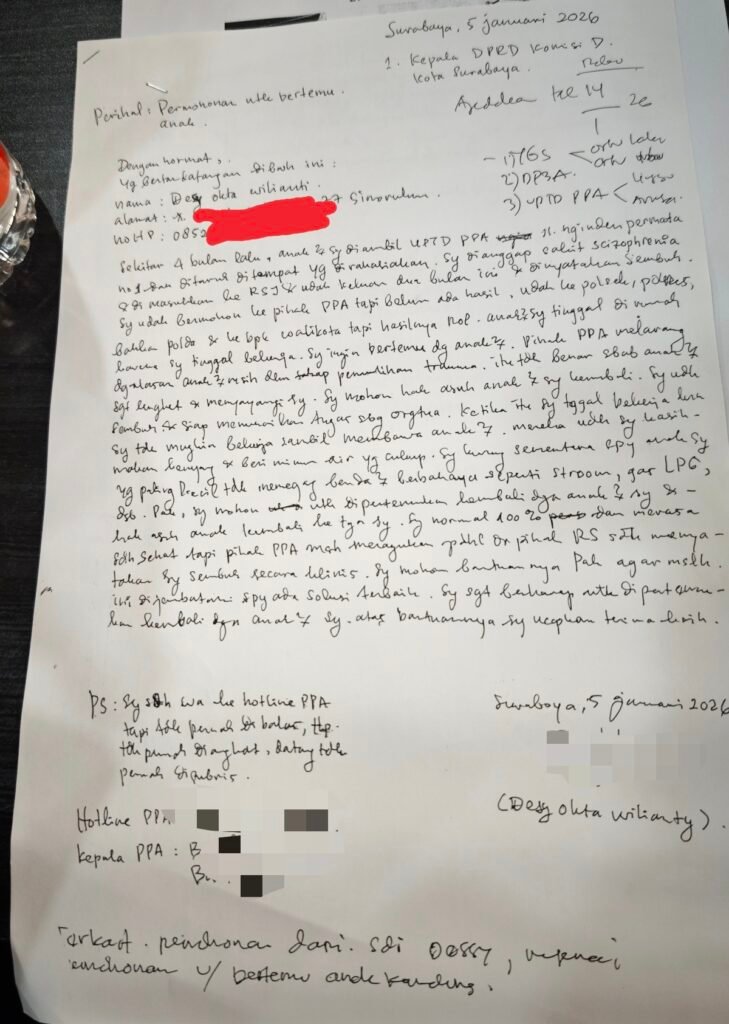 Surabaya, 5 januari 2026
1. Kepala DPRD Komisi D.
Kota Surabaya.
Perihal : Permohonan utk bertemu
anak.
14
26
Dengan hormat,
Yg bertandatangan dibawah ini :
nama : Desy okta wilianti.
alamat :
27 Simorukun.
no HP : 0852
2) DP3A
3) UPTD PPA
Sekitar 4 bulan lalu, anak2 sy diambil UPTD PPA jl. nginden permata
no 1 dan ditaruh ditempat yg dirahasiakan. Sy dianggap sakit scizophrenia
& di masukkan ke RSJ & udah keluar dua bulan ini & dinyatakan sembuh.
Sy udah bermohon ke pihak PPA tapi belum ada hasil, udah ke polsek, polres,
bahkan polda & ke bpk walikota tapi hasilnya nol. anak2 sy tinggal di rumah
karena sy tinggal bekerja. Sy ingin bertemu dg anak2. Pihak PPA melarang
dg alasan anak2 masih dlm tahap pemulihan trauma. itu tdk benar sbab anak2
sgt lengket & menyayangi sy. Sy mohon hak asuh anak2 sy kembali. Sy udh
sembuh & siap menunaikan tugas sbg orgtua. Ketika itu sy tggal bekerja krn
sy tdk mungkin bekerja sambil membawa anak2. mereka udh sy kasih
makan kenyang & beri minum air yg cukup. Sy kurung sementara spy anak sy
yg paling kecil tdk memegang benda2 berbahaya seperti stroom, gas LPG,
dsb. Pak, sy mohon utk dipertemukan kembali dgn anak2 sy &
hak asuh anak kembali ke tgn sy. Sy normal 100% dan merasa
sdh sehat tapi pihak PPA msh meragukan pdhl dr pihak RS sdh menya-
takan sy sembuh secara klinis. Sy mohon bantuannya Pak agar mslh
ini dijembatani spy ada solusi terbaik. Sy sgt berharap utk dipertemu-
kan kembali dgn anak2 sy. atas bantuannya sy ucapkan terima kasih.
PS : Sy sdh wa ke hotline PPA
tapi tdk pernah dibalas, tlp
tdk pernah diangkat, datang tdk
pernah digubris.
Surabaya, 5 januari 2026
Hotline PPA
Kepala PPA : B
(Desy okta wilianty).
Terkait permohonan dari sdi Dessy,
permohonan u/ bertemu anak kandung.